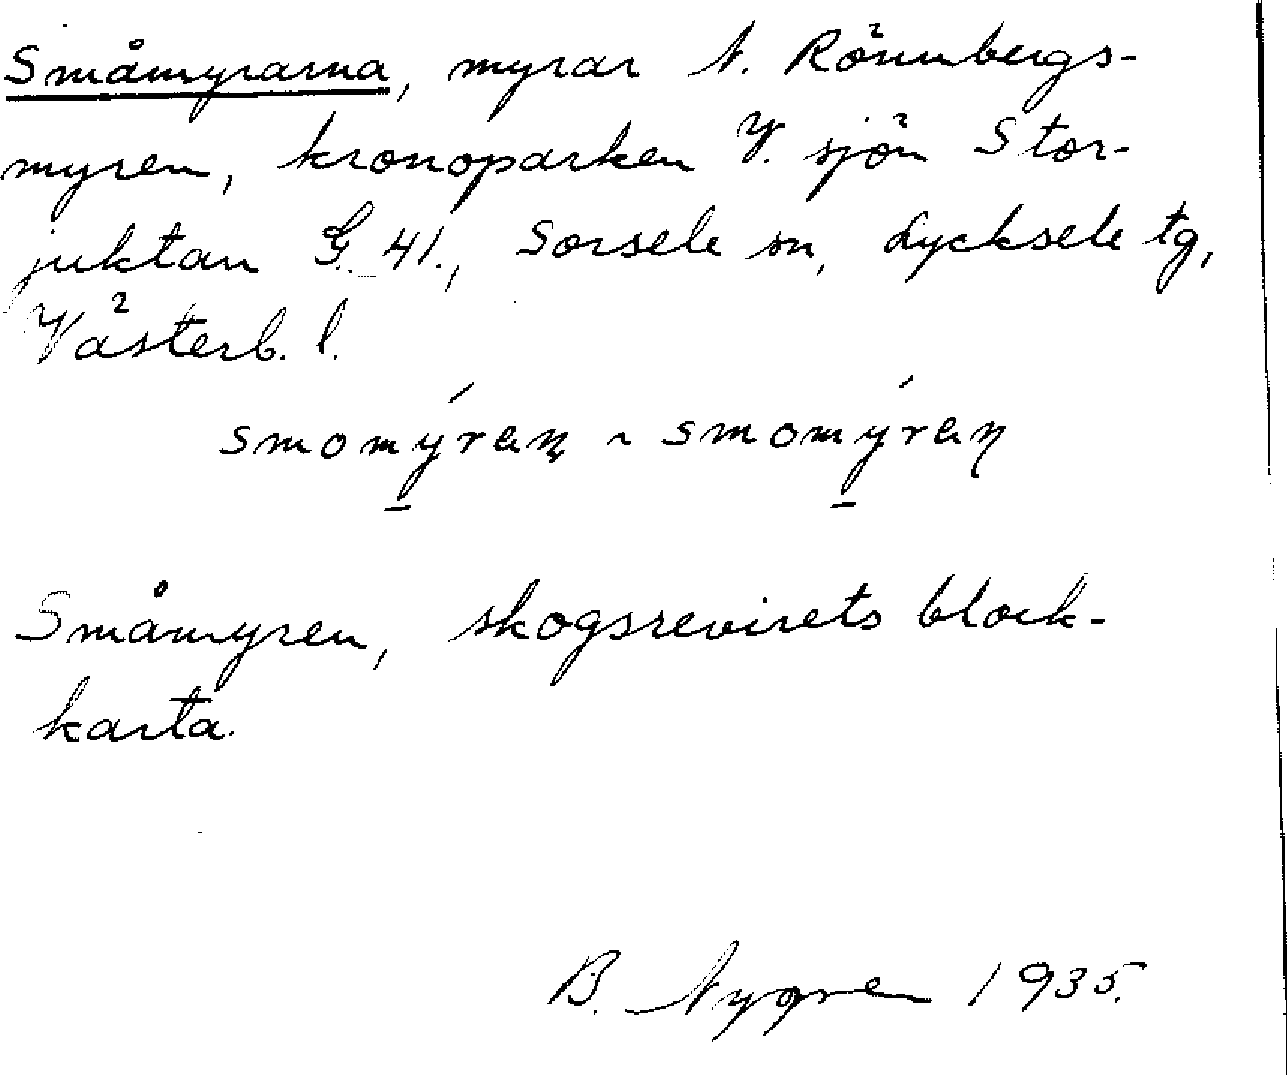 Småmyrarna, myrar N. Rönnbergs-
myren, kronoparken V. sjön Stor-
juktan G. 41., Sorsele sn, Lycksele tg,
Västerb. l.
smomýraɳ ~ smomýraŋ
Småmyren, skogsrevirets block-
karta.
B. Nygren 1935.